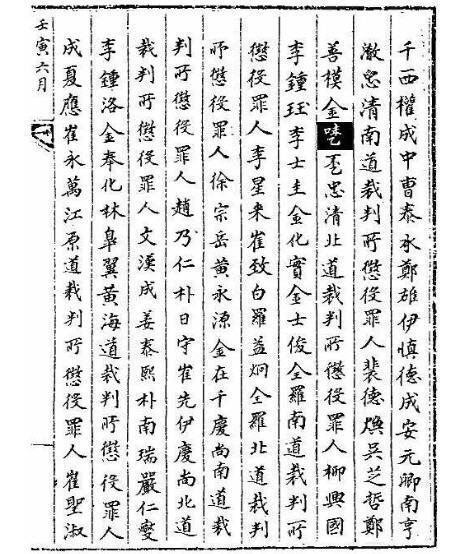 千西權成中曹泰永鄭雄伊慎德成安元卿南亨
澈忠清南道裁判所懲役罪人裴德煥吳芝哲鄭
善模金 丕忠清北道裁判所懲役罪人柳興國
李鍾珏李士圭金化實金士俊全羅南道裁判所
懲役罪人李星來崔致白羅益炯全羅北道裁判
所懲役罪人徐宗岳黃永源金在千慶尚南道裁
判所懲役罪人趙乃仁朴日守崔先伊慶尚北道
裁判所懲役罪人文漢成姜泰熙朴南瑞嚴仁燮
李鍾洛金奉化林皐翼黃海道裁判所懲役罪人
成夏應崔永萬江原道裁判所懲役罪人崔聖淑
壬寅六月